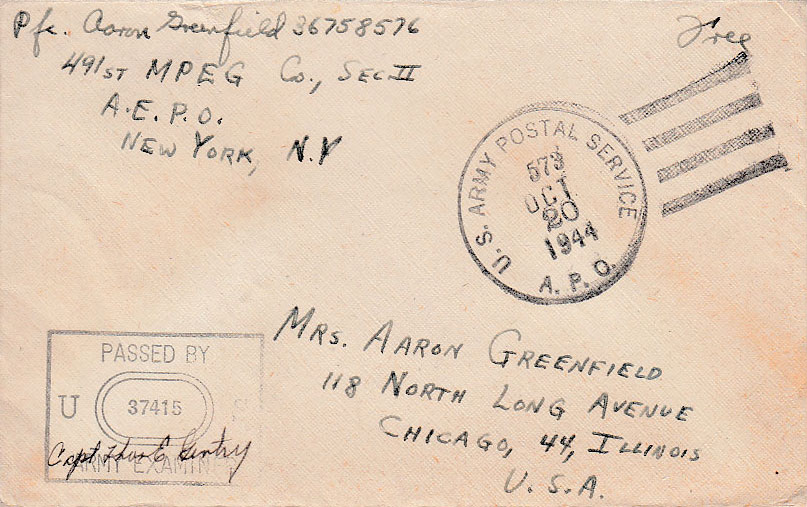 Pfc. Aaron Greenfield 36758576
491ST MPEG Co., SEC II
A.E.P.O.
NEW YORK, N.Y
Free
U.S. ARMY POSTAL SERVICE
573
OCT
20
1944
A.P.O.
MRS. AARON GREENFIELD
118 NORTH LONG AVENUE
CHICAGO, 44, ILLINOIS
U.S.A.
PASSED BY
U S
37415
ARMY EXAMIN
Capt Gentry